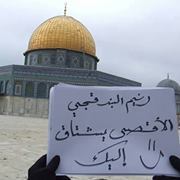 رنيم البندقجي
الأقصى يشتاق
إليك